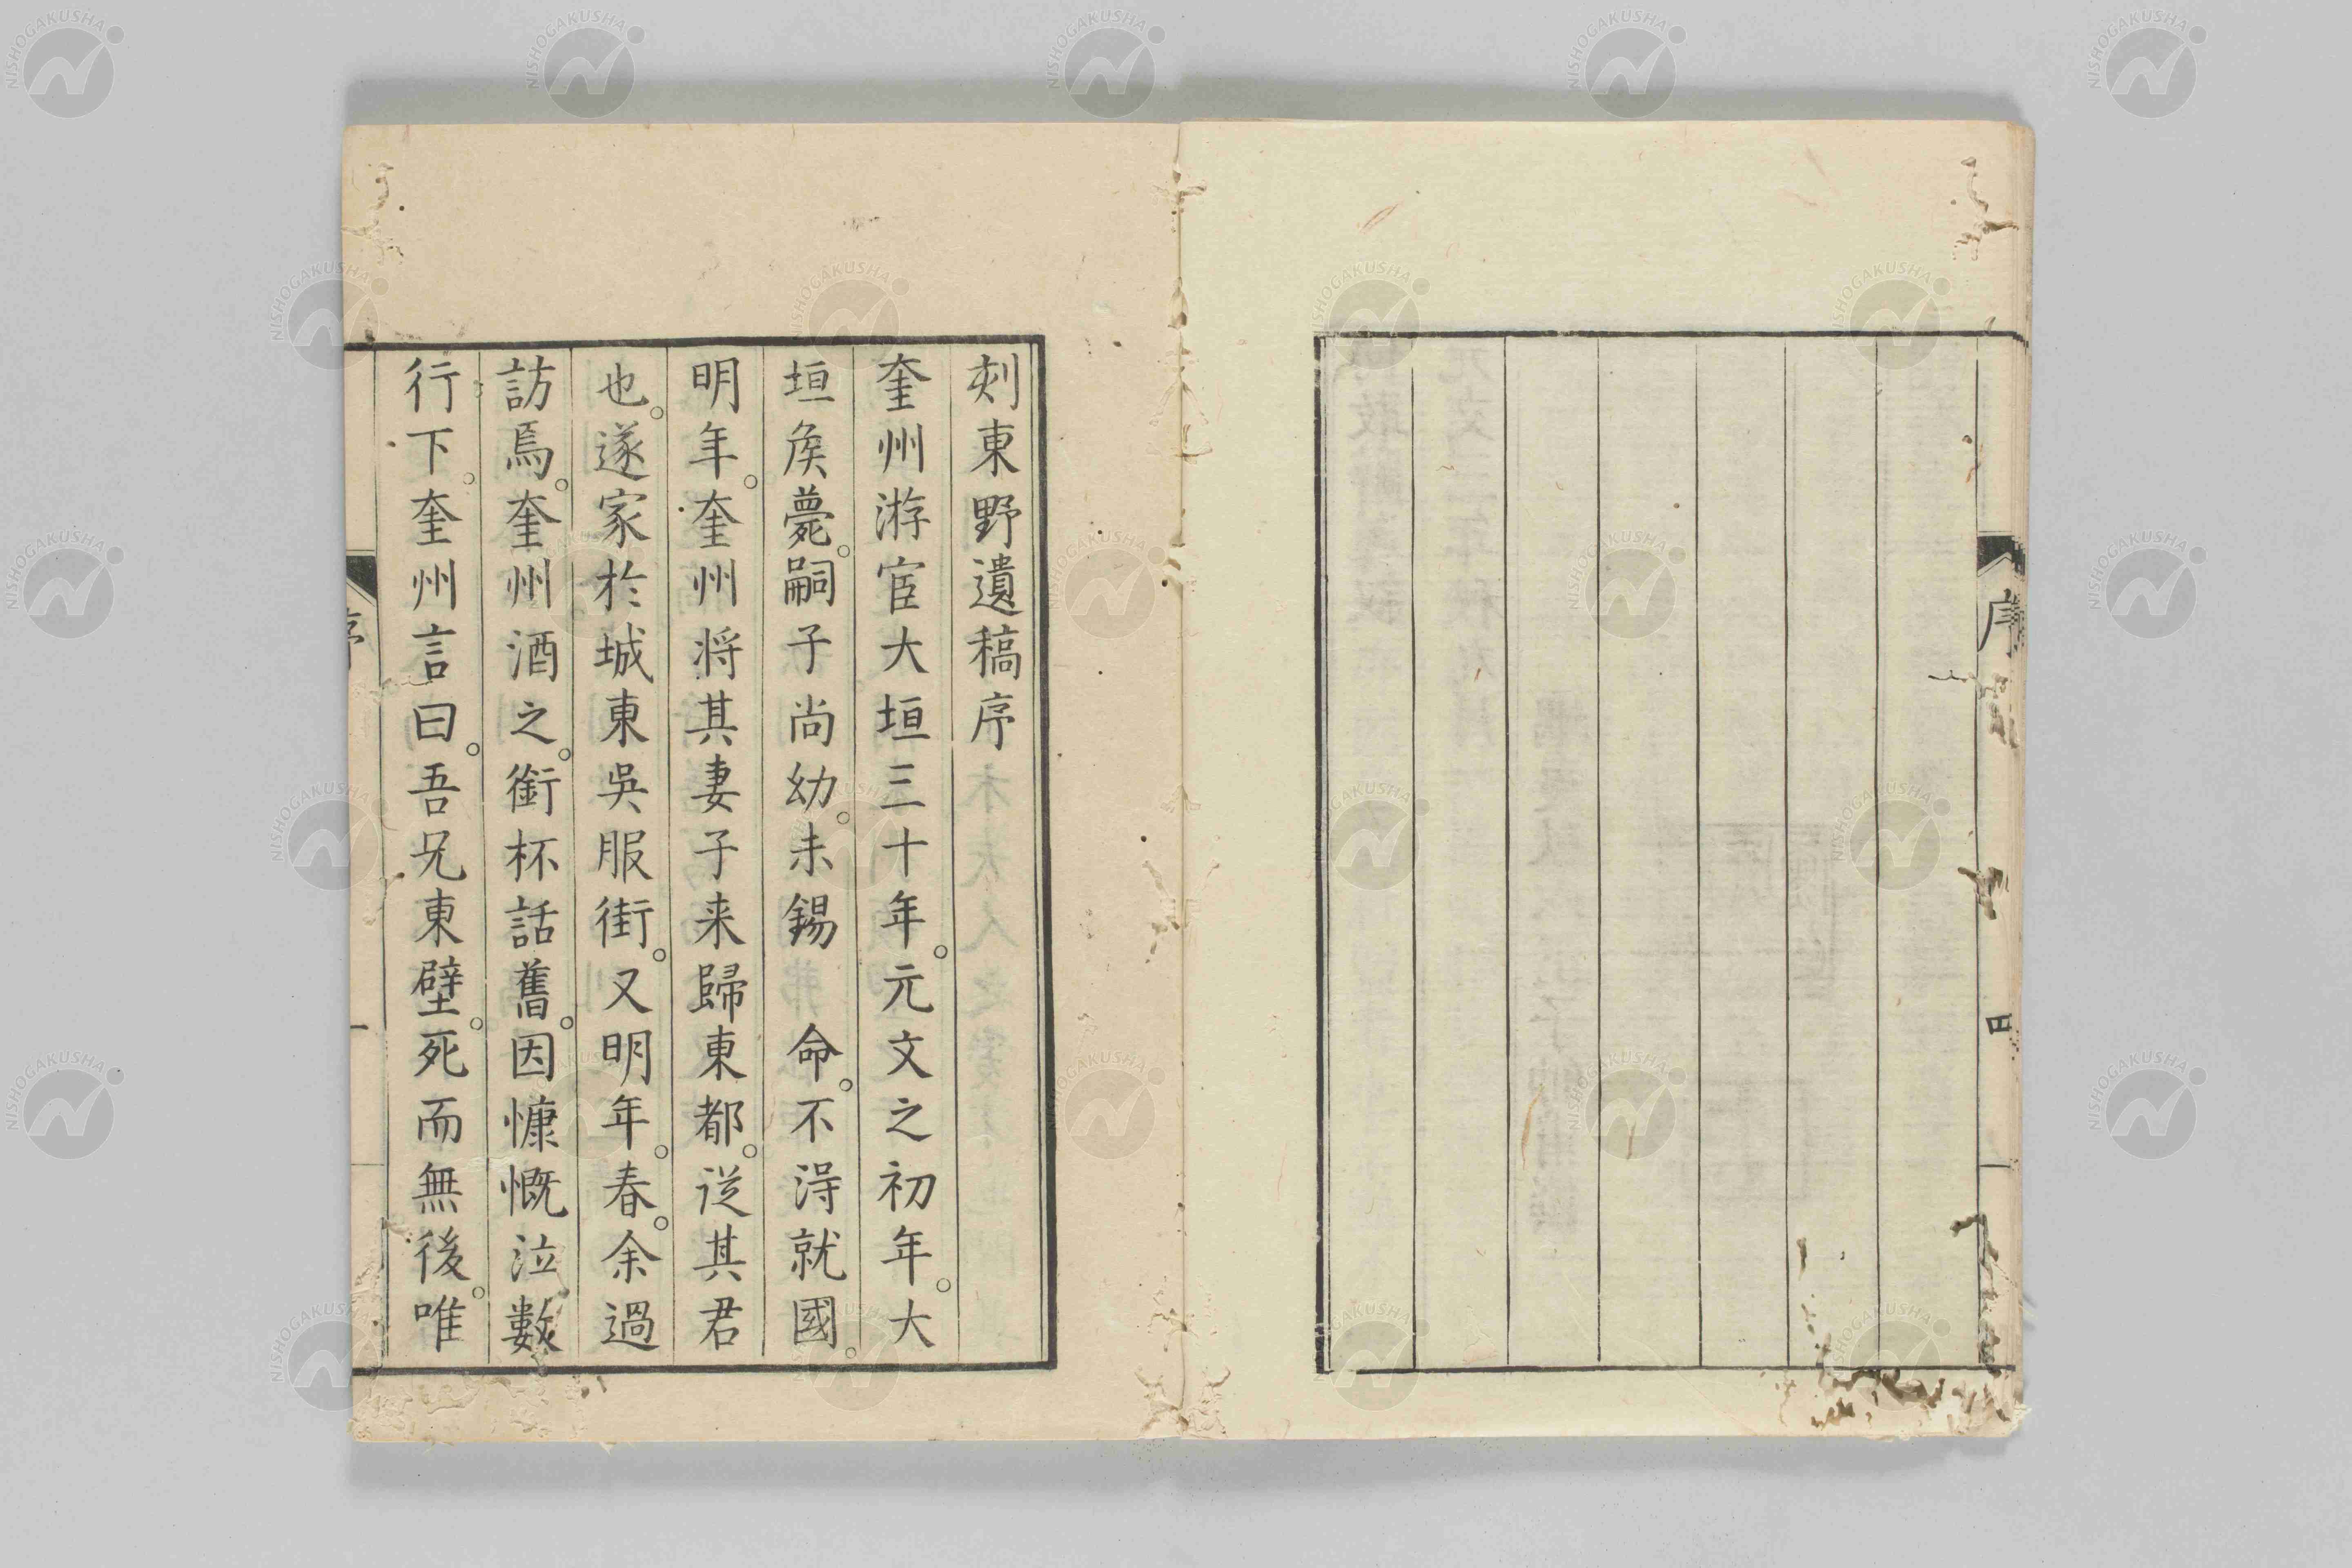 序
四
刻東野遺稿序
奎州游宦大垣三十年。元文之初年。大
垣矦薨。嗣子尚幼。未錫 命。不淂就國。
明年。奎州将其妻子来歸東都。從其君
也。遂家於城東吳服街。又明年。春。余過
訪焉。奎州酒之。銜杯話舊。因慷慨泣數
行下。奎州言曰。吾兄東壁。死而無後。唯
序
一
NISHOGAKUSHA